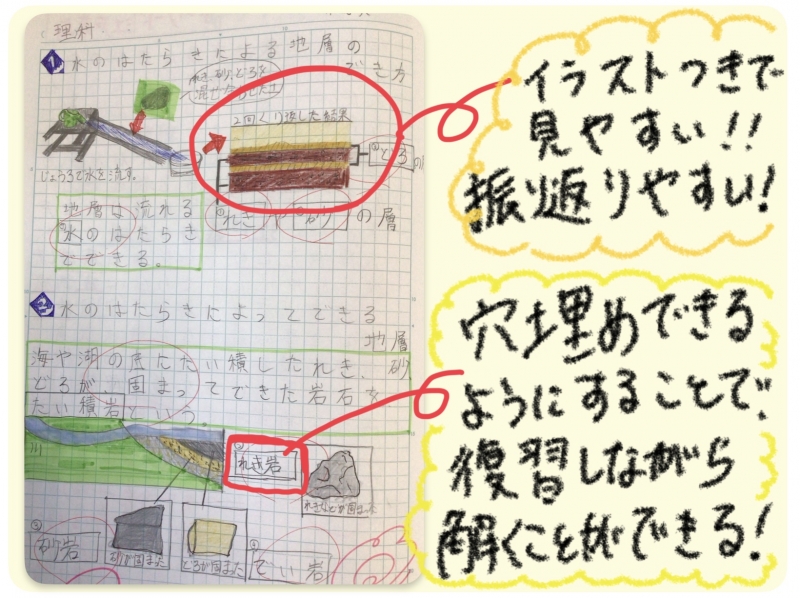 理科
1 水のはたらきによる地層の
でき方
れき、砂、どろを
混ぜ合わせた土
2回くり返した結果
じょうろで水を流す。
どろ
れき
砂
の層
地層は流れる
水のはたらき
でできる。
2 水のはたらきによってできる
地層
海や湖の底にたい積したれき、砂
どろが、固まってできた岩石を
たい積岩という
川
れき岩
れきなどが固まった
砂岩
砂が固まった
どろが固まった
でい岩
イラストつきで
見やすい!!
振り返りやすい!
穴埋めできる
ようにすることで、
復習しながら
解くことができる!